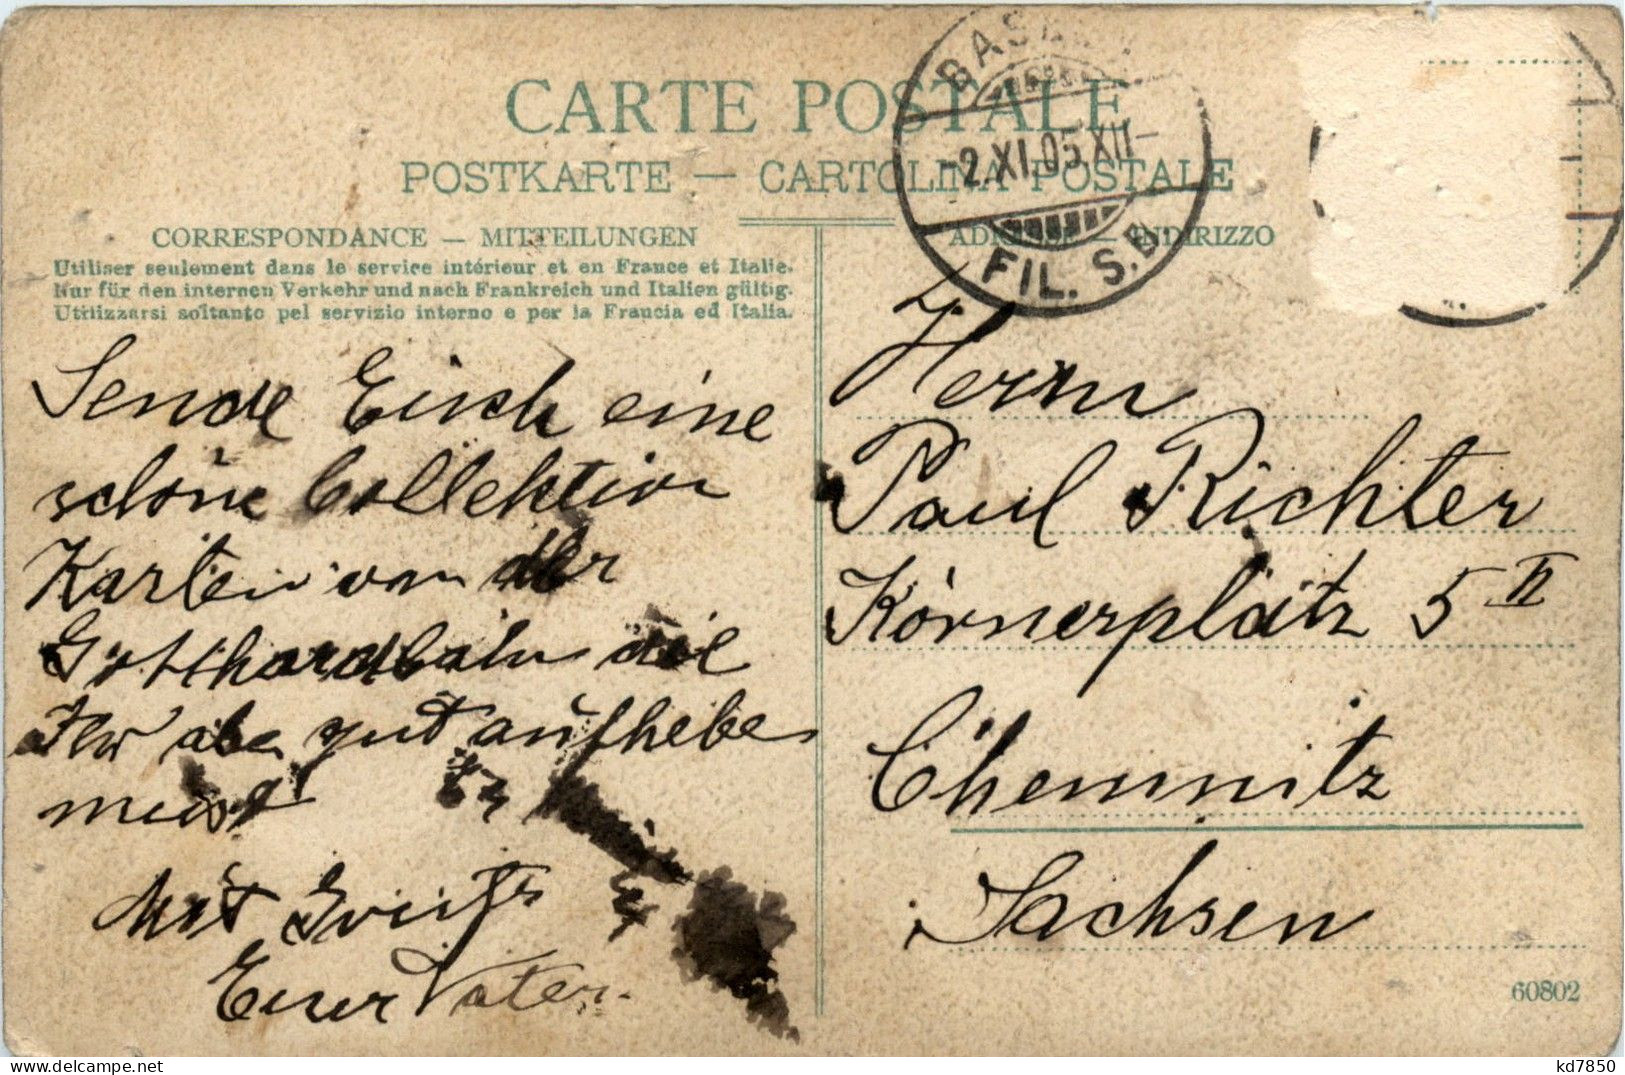 CARTE POSTALE
POSTKARTE — CARTOLINA POSTALE
BASEL
-2.XI.05.XII-
FIL. S.B.
CORRESPONDANCE — MITTEILUNGEN
Utiliser seulement dans le service intérieur et en France et Italie.
Nur für den internen Verkehr und nach Frankreich und Italien gültig.
Utilizzarsi soltanto pel servizio interno e per la Francia ed Italia.
ADRESSE — INDIRIZZO
Sende Euch eine
schöne Collektion
Karten von der
Gotthardbahn die
Ihr aber gut aufheben
müsst
Mit Gruß
Euer Vater.
Herrn
Paul Richter
Körnerplatz 5 II
Chemnitz
Sachsen
60802
kd7850